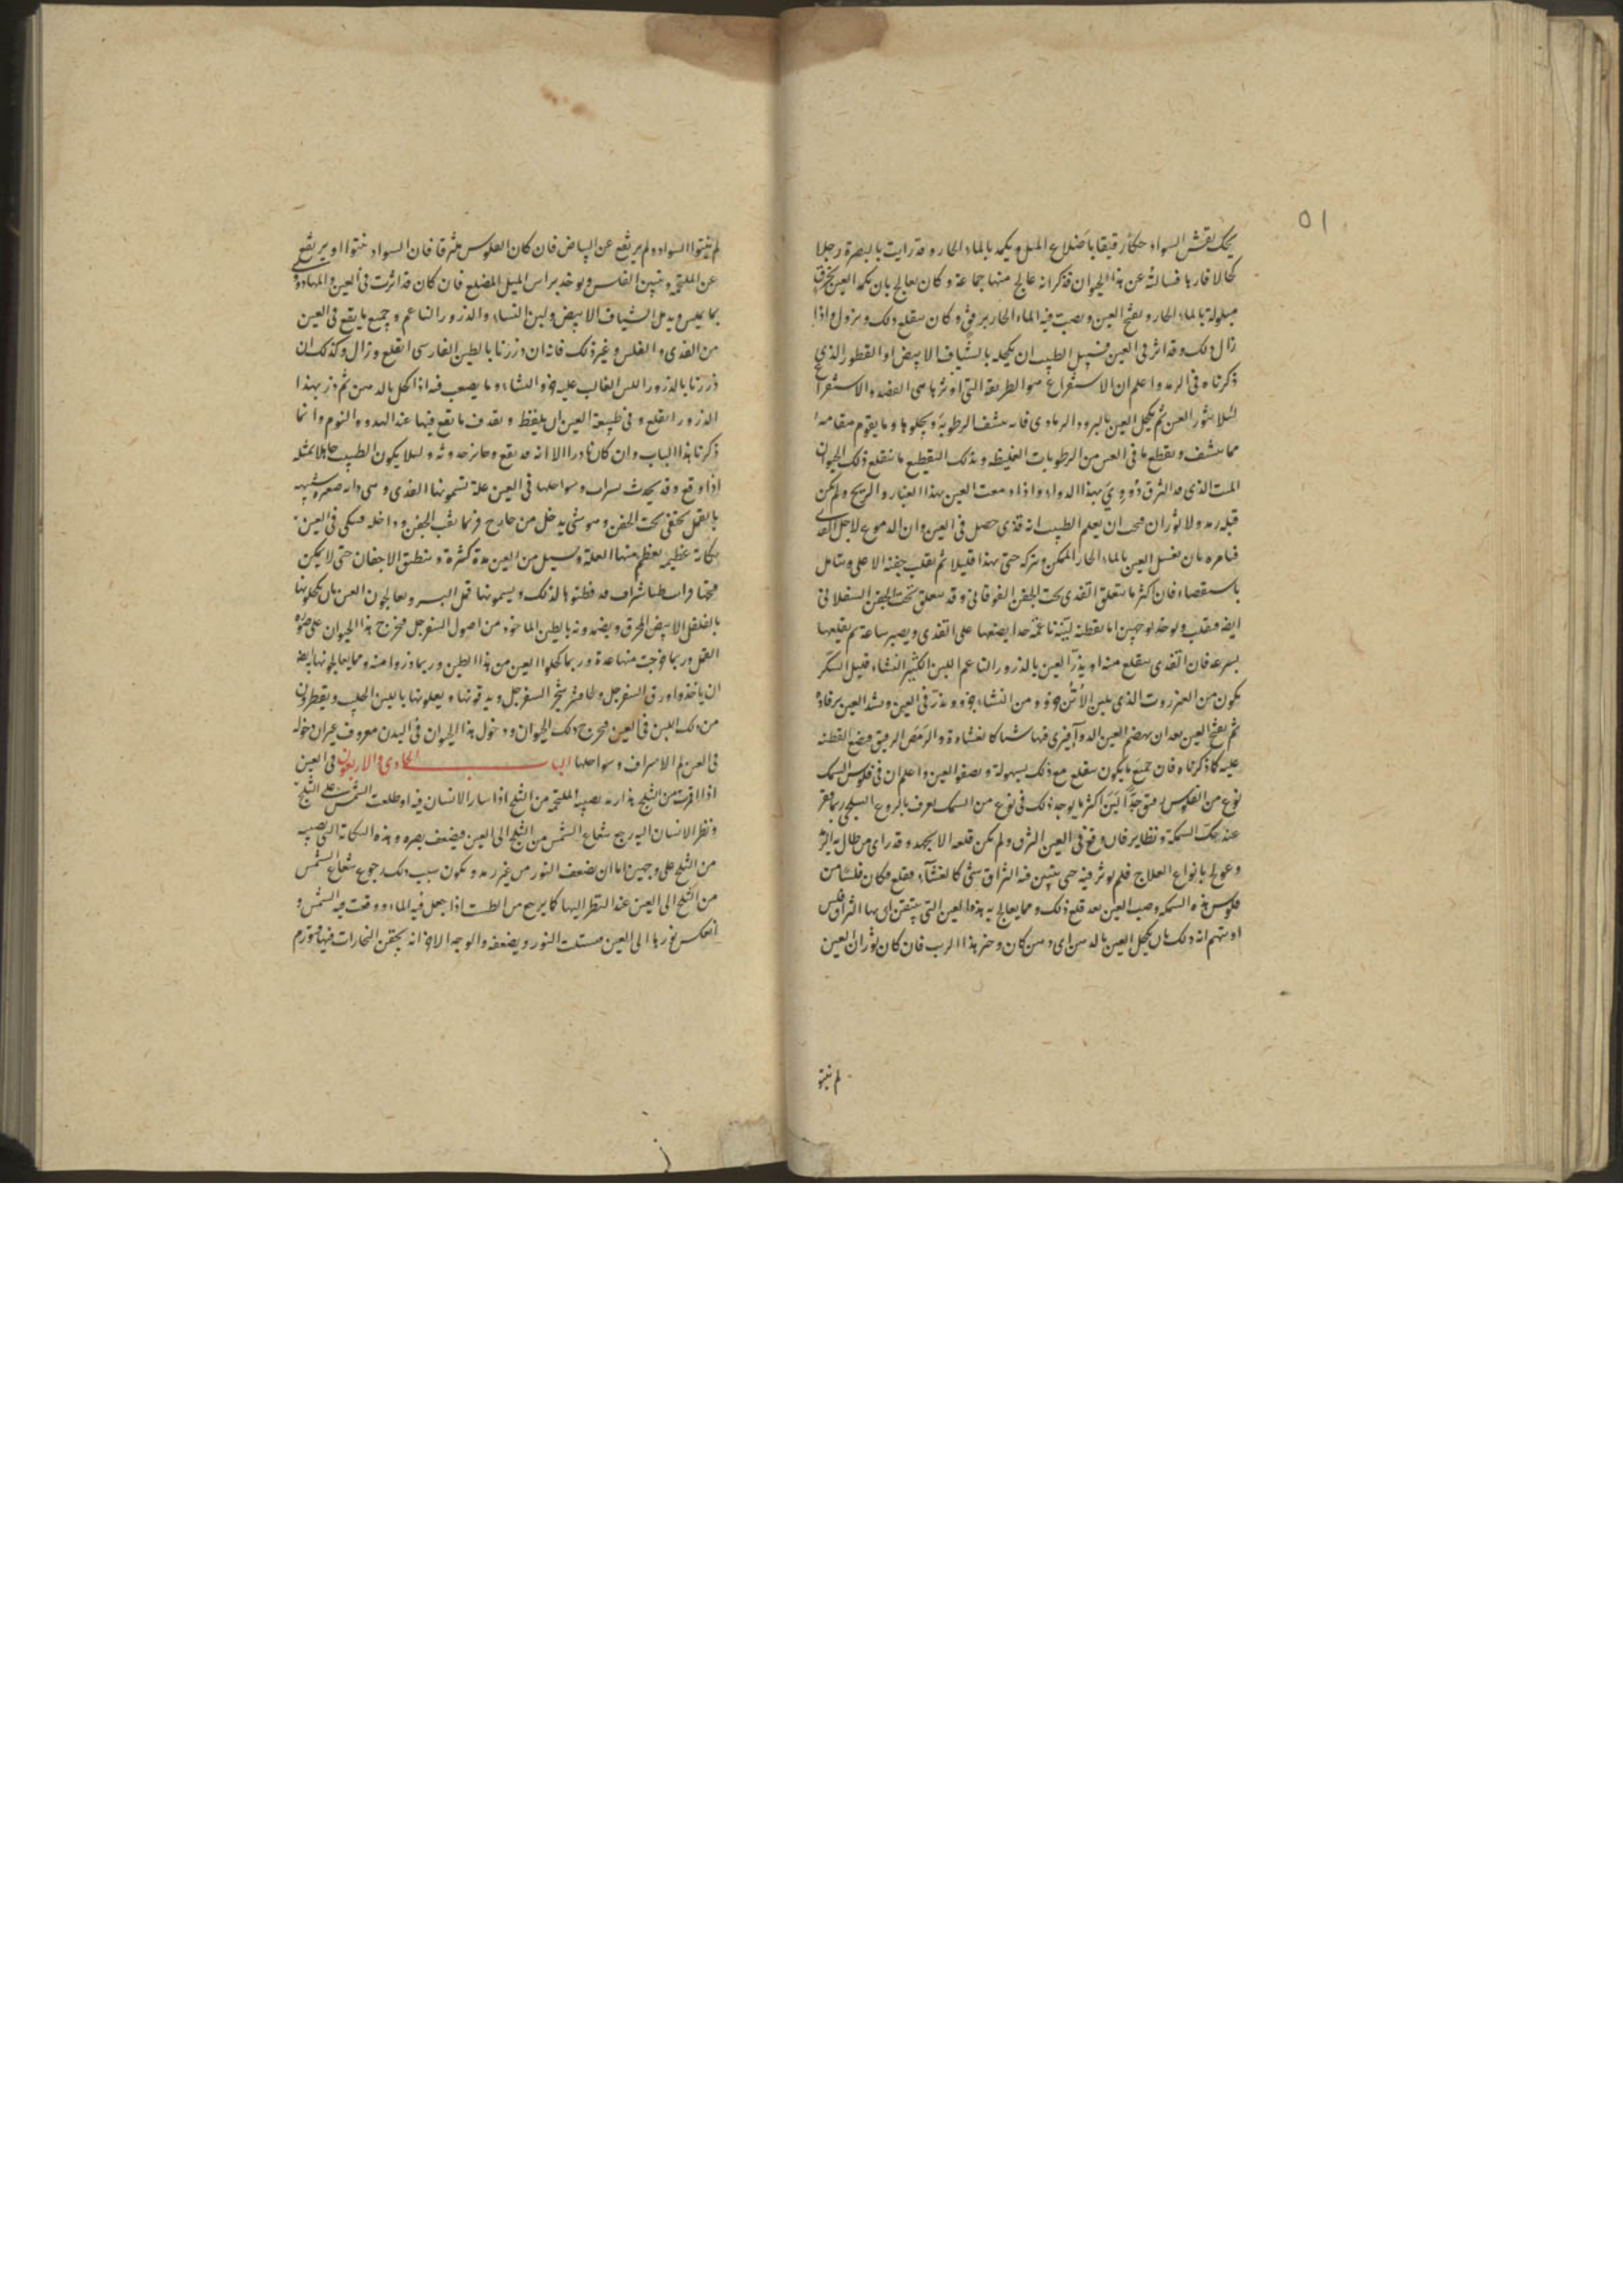 ٥١
يحك بقش السواد حكاً رقيقا باضلاع الميل ويكمد بالماء الحار وقد رايت بالبصرة رجلا
كحالا فارها فسالته عن هذا الحيوان فذكر انه عالج منها جماعة وكان يعالج بان يكمد العين بخرق
مبلولة بالماء الحار ويفتح العين ويصب فيه الماء الحار برفق وكان ينقلع ذلك ويزول واذا
زال ذلك وقد اثر في العين فسبيل الطبيب ان يكحله بالشياف الابيض او القطور الذي
ذكرناه في الرمد واعلم ان الاستفراغ هو الطريقة التي اوثرها هي الفصد والاستفراغ
لئلا يثور العين ثم يكحل العين بالبرود الرمادي فانه ينشف الرطوبة ويجلوها وما يقوم مقامه
مما ينشف ويقطع ما في العين من الرطوبات الغليظه وبذلك التقطيع ما ينقلع ذلك الحيوان
الميت الذي قد التزق دُووِيَ بهذا الدواء واذا دمعت العين بهذا الغبار والريح ولم يكن
قبله رمد ولا ثوران فيجب ان يعلم الطبيب انه قذى حصل في العين وان الدموع لاجل القذى
فيامره بان يغسل العين بالماء الحار الممكن ويتركه حتى يهدا قليلا ثم يقلب جفنه الاعلى ويتامل
باستقصاء فان اكثر ما يتعلق القذى تحت الجفن الفوقاني وقد يتعلق تحت الجفن السفلاني
ايضا فيقلب ويوخذ بوجهين اما بقطنة لينة ناعمة جدا يضعها على القذى ويصبر ساعة ثم يقلعها
بسرعة فان القذى ينقلع منه او يذر العين بالذرور الناعم اللين الكثير النشاء قليل السكر
يكون من العنزروت الذي بلبن الاُتن جزو ومن النشاء جزو ويذر في العين ويشد العين برفادة
ثم يفتح العين بعد ان يهضم العين الدوآ فيرى فيها شيا كالغشاوة والرمص الرقيق فيضع القطنة
عليه كما ذكرناه فان جميع ما يكون ينقلع مع ذلك بسهولة ويصفو العين واعلم ان في فلوس السمك
نوع من الفلوس رقيق جداً لين اكثر ما يوجد ذلك في نوع من السمك يعرف بالروع السلجى ربما قفز
عند حك السمكة وتطاير فان وقع في العين التزق ولم يمكن قلعه الا بجهد وقد راى من طال به اثر
وعولج بانواع العلاج فلم يوثر فيه حتى يتبين فيه التزاق شئ كالغشآء فقلع فكان فلسا من
فلوس هذه السمكه وصب العين بعد قلع ذلك ومما يعالج به هذه العين التي يتيقن ان بها التزاق فلس
او يتهم انه ذلك بان يكحل العين بالدهن اى دهن كان وخبر هذا الرب فان كان ثوران العين
لم تنتو
لم تنتوا السواد ولم يرتفع عن البياض فان كان الفلوس ملتزقا فان السواد تنتوا او يرتفع
عن الملتحمة وتبين الفلس ويوخذ براس الميل المضلع فان كان قد اثرت في العين والمها دووى
بما يملس ويدمل الشياف الابيض ولبن النساء والذرور الناعم وجميع ما يقع في العين
من القذى والفلس وغير ذلك فانه ان ذررنا بالطين الفارسي انقلع وزال وكذلك ان
ذررنا بالذرور اللين الغالب عليه جزو النشاء وما يصعب فيه اذا كحل بالدهن ثم ذر بهذا
الذرور انقلع وفي طبيعة العين ان يلفظ ويقذف ما يقع فيها عند الهدوء والنوم وانما
ذكرنا هذا الباب وان كان نادرا الا انه قد يقع وجايز حدوثه ولئلا يكون الطبيب جاهلا بمثله
اذا وقع وقد يحدث بسراب وسواحلها في العين علة تسمونها القذى وهي دابة صغيرة شبيهة
بالقمل تختفي تحت الجفن وهو شئ يدخل من خارج فربما يثقب الجفن وداخله فينكى في العين
نكاية عظيمة يعظم منها العلة وتسيل من العين مدة كثيرة وتنطبق الاجفان حتى لا يمكن
فتحها واطباء شراف قد فطنوا لذلك ويسمونها قمل البسر ويعالجون العين بان يكحلونها
بالفلفل الابيض المحرق ويضمدونه بالطين الماخوذ من اصول السفرجل فيخرج هذا الحيوان على صورة
القمل وربما خرجت منها عدة وربما كحلوا العين من هذا الطين وربما ذروا منه ومما يعالجونها ايضا
ان ياخذوا ورق السفرجل ولحا شجر السفرجل ويدقونها ويغلونها باللبن الحليب ويقطرون
من ذلك اللبن في العين فيخرج ذلك الحيوان ودخول هذا الحيوان في البدن معروف غير ان دخوله
في العين لم الا بسراف وسواحلها الباب الحادي والاربعون في العين
اذا اقرت من الثلج هذا ريه يصيب الملتحمة من الثلج اذا سار الانسان فيه او طلعت الشمس على الثلج
ونظر الانسان اليه رجع شعاع الشمس من الثلج الى العين فيضعف بصره وهذه النكاية التي تصيب
من الثلج على وجهين اما ان يضعف النور من غير رمد ويكون سبب ذلك رجوع شعاع الشمس
من الثلج الى العين عند النظر اليها كما يرجع من الطست اذا جعل فيه الماء ووقعت فيه الشمس و
انعكس نورها الى العين فيشتت النور ويضعفه والوجه الاخر انه يحتقن البخارات فيها فيتورم